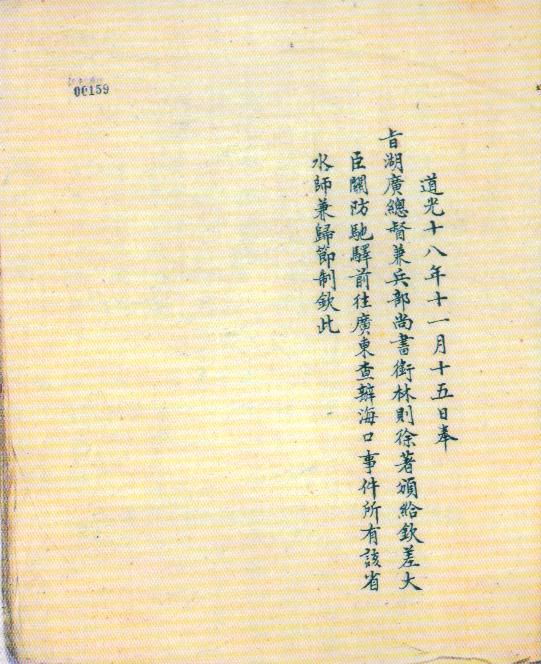 道光十八年十一月十五日奉
旨湖廣總督兼兵部尚書銜林則徐著頒給欽差大
臣關防馳驛前往廣東查辦海口事件所有該省
水師兼歸節制欽此
00159